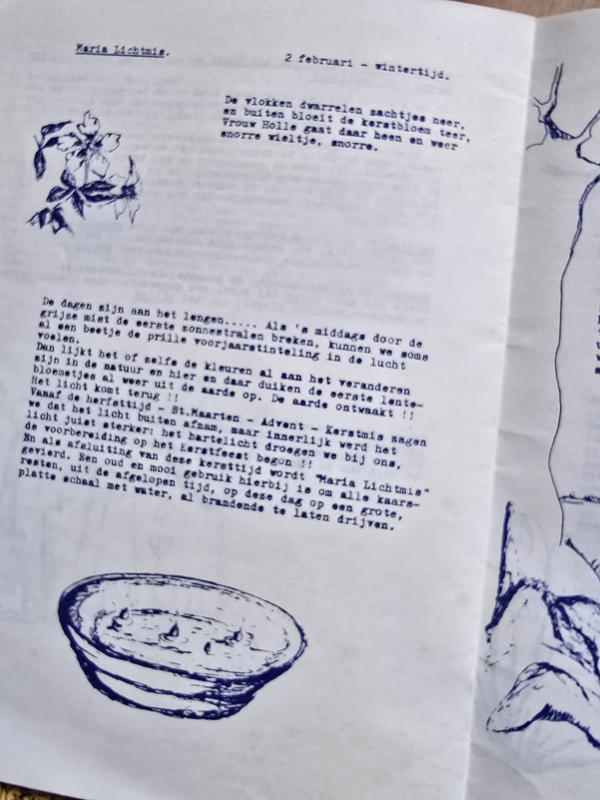 Maria Lichtmis.
2 februari - wintertijd.
De vlokken dwarrelen zachtjes neer,
en buiten bloeit de kerstbloem teer,
Vrouw Holle gaat daar heen en weer
snorre wieltje, snorre.
De dagen zijn aan het lengen..... Als 's middags door de
grijze mist de eerste zonnestralen breken, kunnen we soms
al een beetje de prille voorjaarstinteling in de lucht
voelen.
Dan lijkt het of zelfs de kleuren al aan het veranderen
zijn in de natuur en hier en daar duiken de eerste lente-
bloemetjes al weer uit de aarde op. De aarde ontwaakt !!
Het licht komt terug !!
Vanaf de herfsttijd - St.Maarten - Advent - Kerstmis zagen
we dat het licht buiten afnam, maar innerlijk werd het
licht juist sterker: het hartelicht droegen we bij ons,
de voorbereiding op het kerstfeest begon !!
En als afsluiting van deze kersttijd wordt "Maria Lichtmis"
gevierd. Een oud en mooi gebruik hierbij is om alle kaars-
resten, uit de afgelopen tijd, op deze dag op een grote,
platte schaal met water, al brandende te laten drijven.